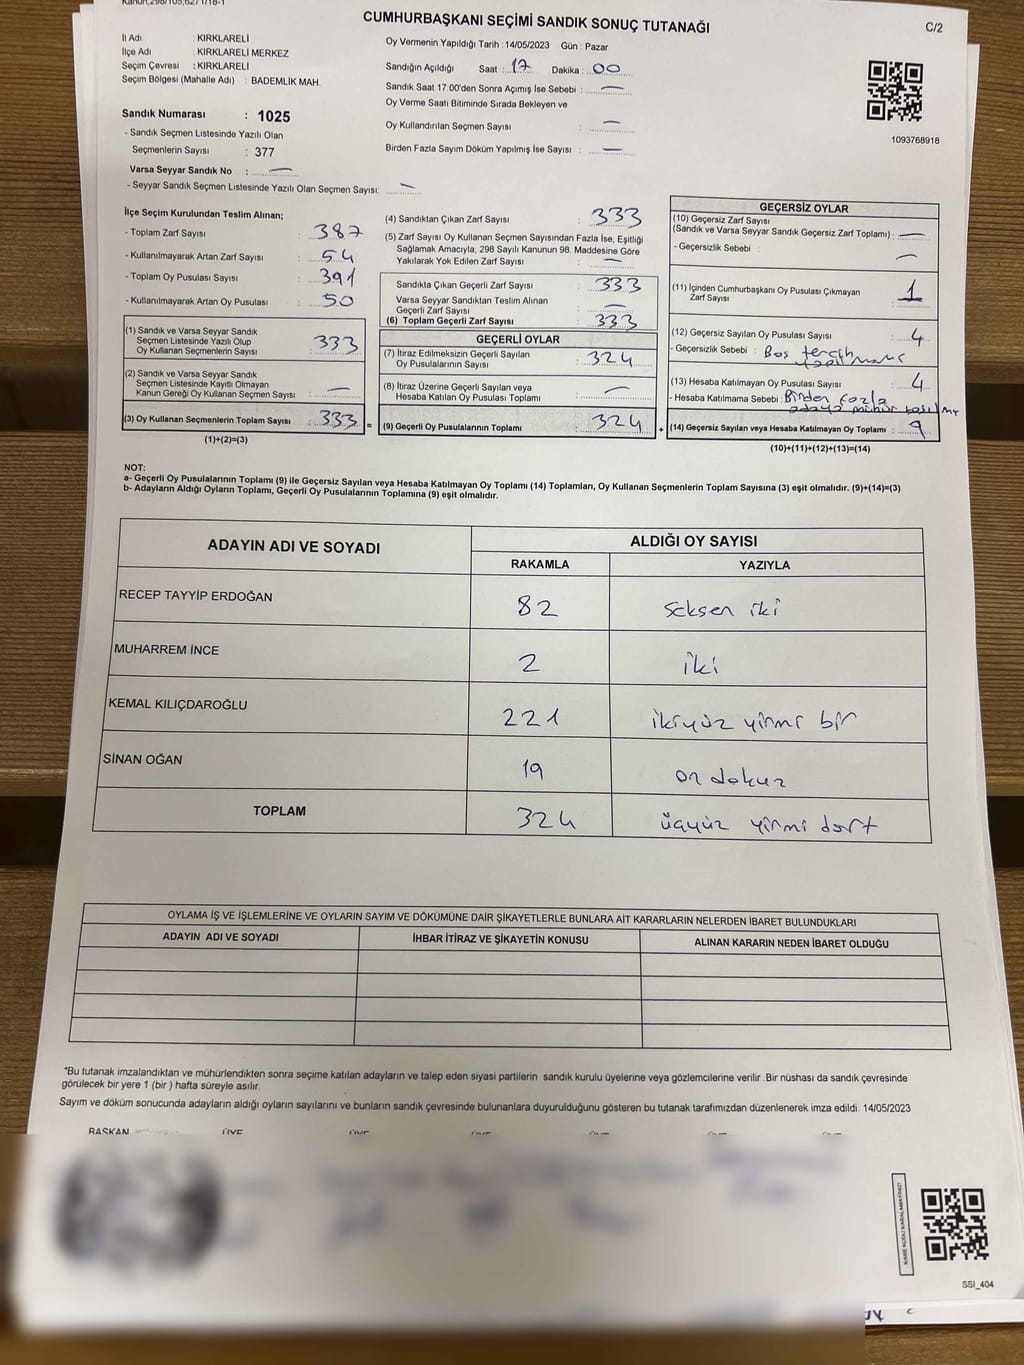 CUMHURBAŞKANI SEÇİMİ SANDIK SONUÇ TUTANAĞI
C/2
İl Adı : KIRKLARELİ
İlçe Adı : KIRKLARELİ MERKEZ
Seçim Çevresi : KIRKLARELİ
Seçim Bölgesi (Mahalle Adı) : BADEMLİK MAH.
Sandık Numarası : 1025
- Sandık Seçmen Listesinde Yazılı Olan
Seçmenlerin Sayısı : 377
Varsa Seyyar Sandık No : —
- Seyyar Sandık Seçmen Listesinde Yazılı Olan Seçmen Sayısı: —
Oy Vermenin Yapıldığı Tarih : 14/05/2023 Gün : Pazar
Sandığın Açıldığı Saat : 17 Dakika : 00
Sandık Saat 17:00'den Sonra Açımış İse Sebebi : —
Oy Verme Saati Bitiminde Sırada Bekleyen ve
Oy Kullandırılan Seçmen Sayısı : —
Birden Fazla Sayım Döküm Yapılmış İse Sayısı : —
1093768918
İlçe Seçim Kurulundan Teslim Alınan;
- Toplam Zarf Sayısı : 387
- Kullanılmayarak Artan Zarf Sayısı : 54
- Toplam Oy Pusulası Sayısı : 391
- Kullanılmayarak Artan Oy Pusulası : 50
(1) Sandık ve Varsa Seyyar Sandık
Seçmen Listesinde Yazılı Olup
Oy Kullanan Seçmenlerin Sayısı : 333
(2) Sandık ve Varsa Seyyar Sandık
Seçmen Listesinde Kayıtlı Olmayan
Kanun Gereği Oy Kullanan Seçmen Sayısı : —
(3) Oy Kullanan Seçmenlerin Toplam Sayısı : 333 =
(1)+(2)=(3)
(4) Sandıktan Çıkan Zarf Sayısı : 333
(5) Zarf Sayısı Oy Kullanan Seçmen Sayısından Fazla İse, Eşitliği
Sağlamak Amacıyla; 298 Sayılı Kanunun 98. Maddesine Göre
Yakılarak Yok Edilen Zarf Sayısı : —
Sandıkla Çıkan Geçerli Zarf Sayısı : 333
Varsa Seyyar Sandıktan Teslim Alınan
Geçerli Zarf Sayısı : —
(6) Toplam Geçerli Zarf Sayısı : 333
GEÇERLİ OYLAR
(7) İtiraz Edilmeksizin Geçerli Sayılan
Oy Pusulalarının Sayısı : 324
(8) İtiraz Üzerine Geçerli Sayılan veya
Hesaba Katılan Oy Pusulası Toplamı : —
(9) Geçerli Oy Pusulalarının Toplamı : 324 +
GEÇERSİZ OYLAR
(10) Geçersiz Zarf Sayısı
(Sandık ve Varsa Seyyar Sandık Geçersiz Zarf Toplamı) : —
- Geçersizlik Sebebi : —
(11) İçinden Cumhurbaşkanı Oy Pusulası Çıkmayan
Zarf Sayısı : 1
(12) Geçersiz Sayılan Oy Pusulası Sayısı : 4
- Geçersizlik Sebebi : Boş tercih
(13) Hesaba Katılmayan Oy Pusulası Sayısı : 4
- Hesaba Katılmama Sebebi : Birden fazla
adaya mühür
(14) Geçersiz Sayılan veya Hesaba Katılmayan Oy Toplamı : 9
(10)+(11)+(12)+(13)=(14)
NOT:
a- Geçerli Oy Pusulalarının Toplamı (9) ile Geçersiz Sayılan veya Hesaba Katılmayan Oy Toplamı (14) Toplamları, Oy Kullanan Seçmenlerin Toplam Sayısına (3) eşit olmalıdır. (9)+(14)=(3)
b- Adayların Aldığı Oyların Toplamı, Geçerli Oy Pusulalarının Toplamına (9) eşit olmalıdır.
ADAYIN ADI VE SOYADI ALDIĞI OY SAYISI
RAKAMLA YAZIYLA
RECEP TAYYİP ERDOĞAN 82 seksen iki
MUHARREM İNCE 2 iki
KEMAL KILIÇDAROĞLU 221 ikiyüz yirmi bir
SİNAN OĞAN 19 on dokuz
TOPLAM 324 üçyüz yirmi dört
OYLAMA İŞ VE İŞLEMLERİNE VE OYLARIN SAYIM VE DÖKÜMÜNE DAİR ŞİKAYETLERLE BUNLARA AİT KARARLARIN NELERDEN İBARET BULUNDUKLARI
ADAYIN ADI VE SOYADI İHBAR İTİRAZ VE ŞİKAYETİN KONUSU ALINAN KARARIN NEDEN İBARET OLDUĞU
"Bu tutanak imzalandıktan ve mühürlendikten sonra seçime katılan adayların ve talep eden siyasi partilerin sandık kurulu üyelerine veya gözlemcilerine verilir .Bir nüshası da sandık çevresinde
görülecek bir yere 1 (bir ) hafta süreyle asılır.
Sayım ve döküm sonucunda adayların aldığı oyların sayılarını ve bunların sandık çevresinde bulunanlara duyurulduğunu gösteren bu tutanak tarafımızdan düzenlenerek imza edildi. 14/05/2023
BAŞKAN ÜYE
SSI_404